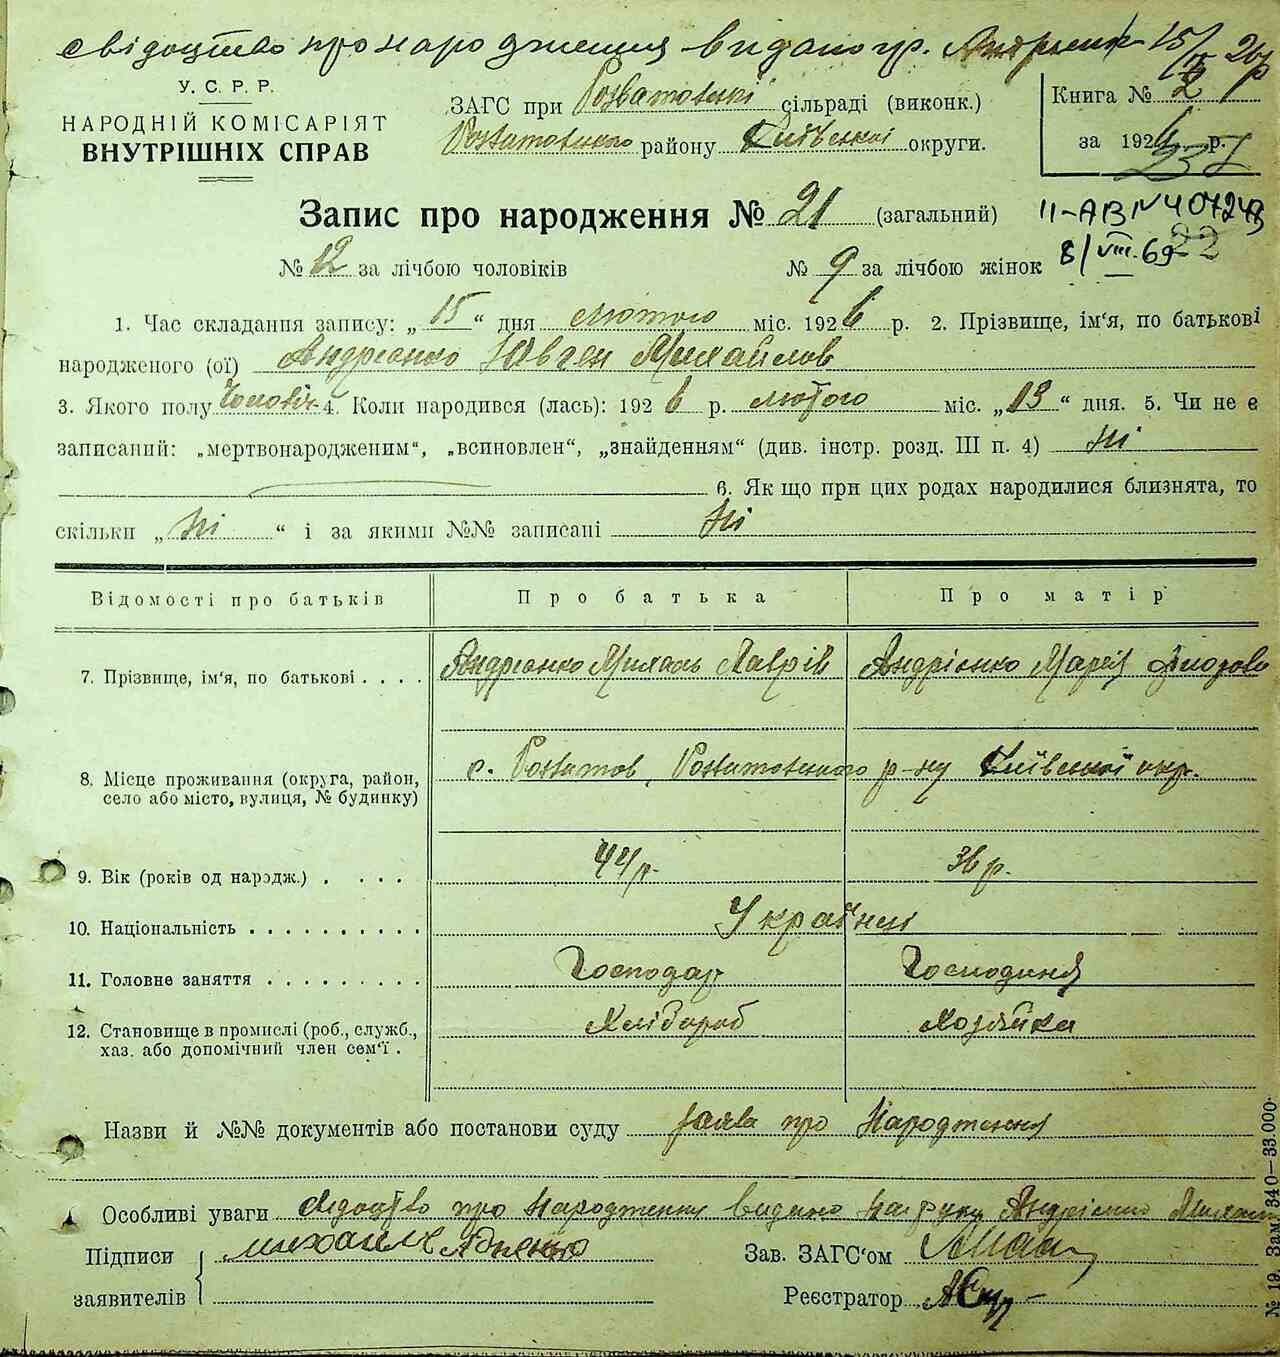 свідоцтво про народження видано гр. Андрієнк 15/ІІ 26р
У. С. Р. Р.
НАРОДНІЙ КОМІСАРІЯТ
ВНУТРІШНІХ СПРАВ
ЗАГС при Розважівські сільраді (виконк.)
Розважівського району Київської округи.
Книга № 2
за 1926 р.
Запис про народження № 21 (загальний)
II-АВ № 407243
8/VIII.69
22
№ 12 за лічбою чоловіків № 9 за лічбою жінок
1. Час складання запису: „ 15 “ дня лютого міс. 1926 р. 2. Прізвище, ім‘я, по батькові
народженого (ої) Андрієнко Явген Михайлов
3. Якого полу Чоловіч. 4. Коли народився (лась): 1926 р. лютого міс. „ 13 “ дня. 5. Чи не є
записаний: „мертвонародженим“, „всиновлен“, „знайденням“ (див. інстр. розд. III п. 4) Ні
6. Як що при цих родах народилися близнята, то
скільки „ Ні “ і за якими №№ записані Ні
Відомості про батьків Про батька Про матір
7. Прізвище, ім‘я, по батькові . . . . Андрієнко Михаль Лаврів Андрієнко Марія
8. Місце проживання (округа, район,
село або місто, вулиця, № будинку)
с. Розважів, Розважівського р-ну Київської окр.
9. Вік (років од народж.) . . . . 44 р. 36 р.
10. Національність . . . . . . . . . . Українці
11. Головне заняття . . . . . . . . . Господар Господиня
12. Становище в промислі (роб., служб.,
хаз. або допомічний член сем‘ї .
Хлібороб Хозяйка
Назви й №№ документів або постанови суду заява про Народження
Особливі уваги свідоцтво про Народження видано на руки Андрієнко Михаль
Підписи
заявителів
Зав. ЗАГС‘ом
Реєстратор
№ 19. Зам. 340—33.000.